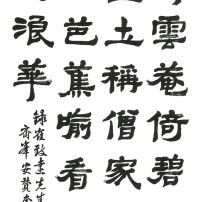 雲菴倚碧
土稱僧家
芭蕉喻看
浪華
錄崔致遠先生
齊峯安贊